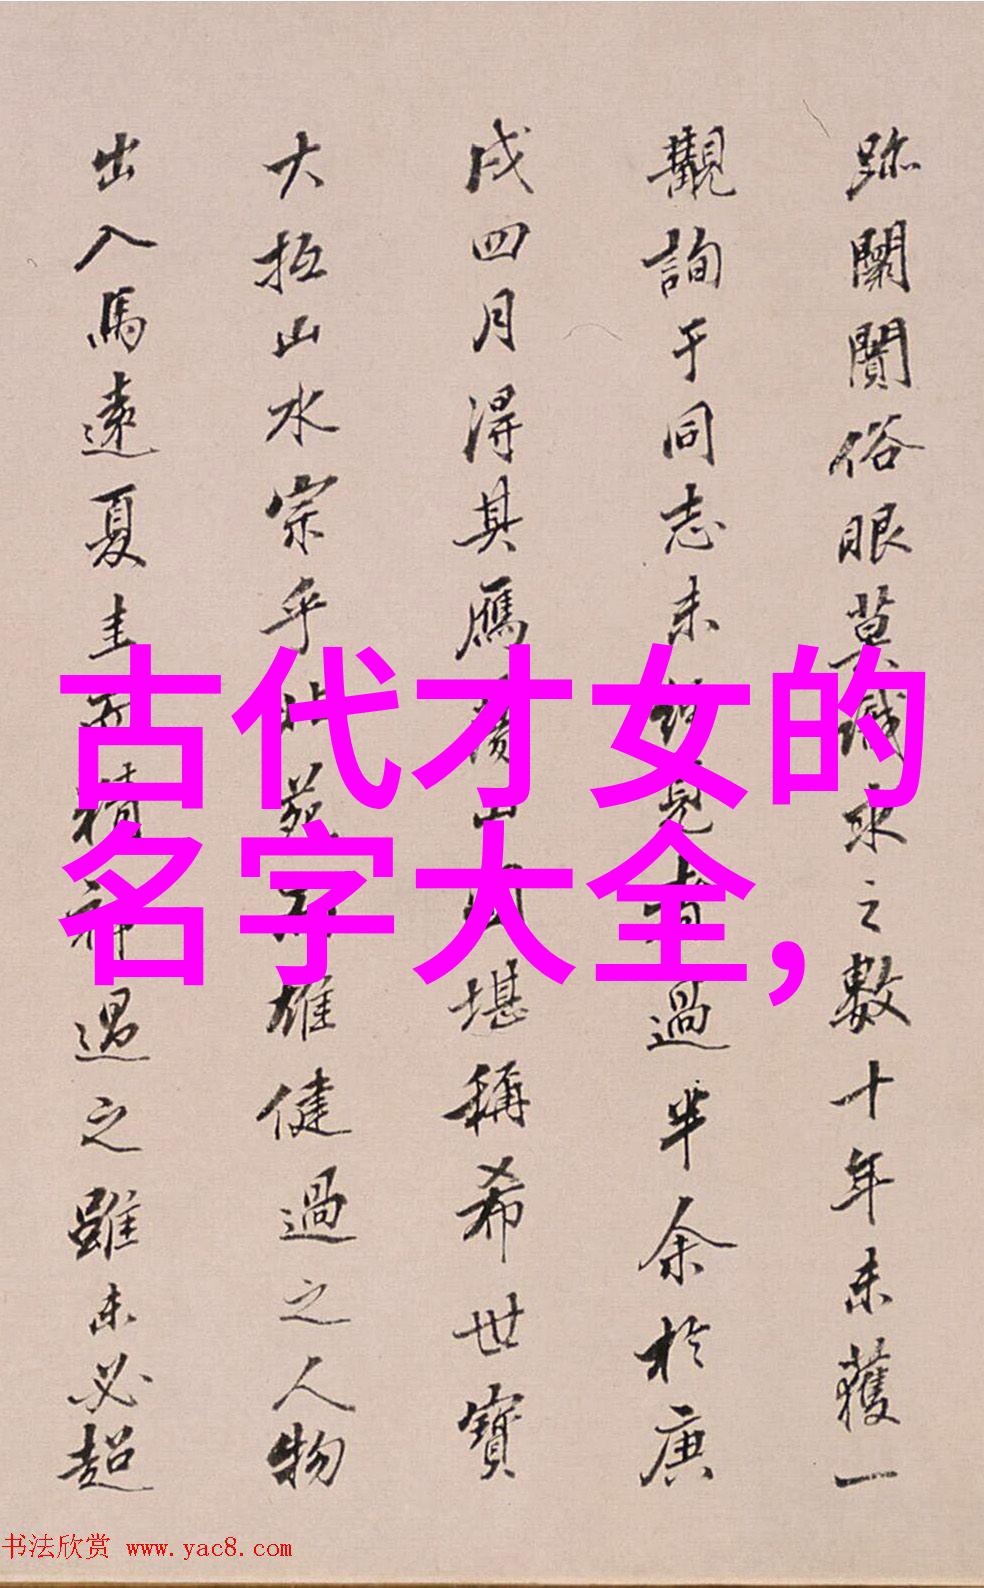 跡闌闠俗眼莫識求之數十年未獲一
觀詢于同志未見者過半余於庚
戌四月淂其鴈山堪稱希世寶
大抵山水宗乎北苑而雄健過之人物
出入馬遠夏圭而精神過之雖未必超
古代才女的
名字大全,
书法欣赏 www.yac8.com